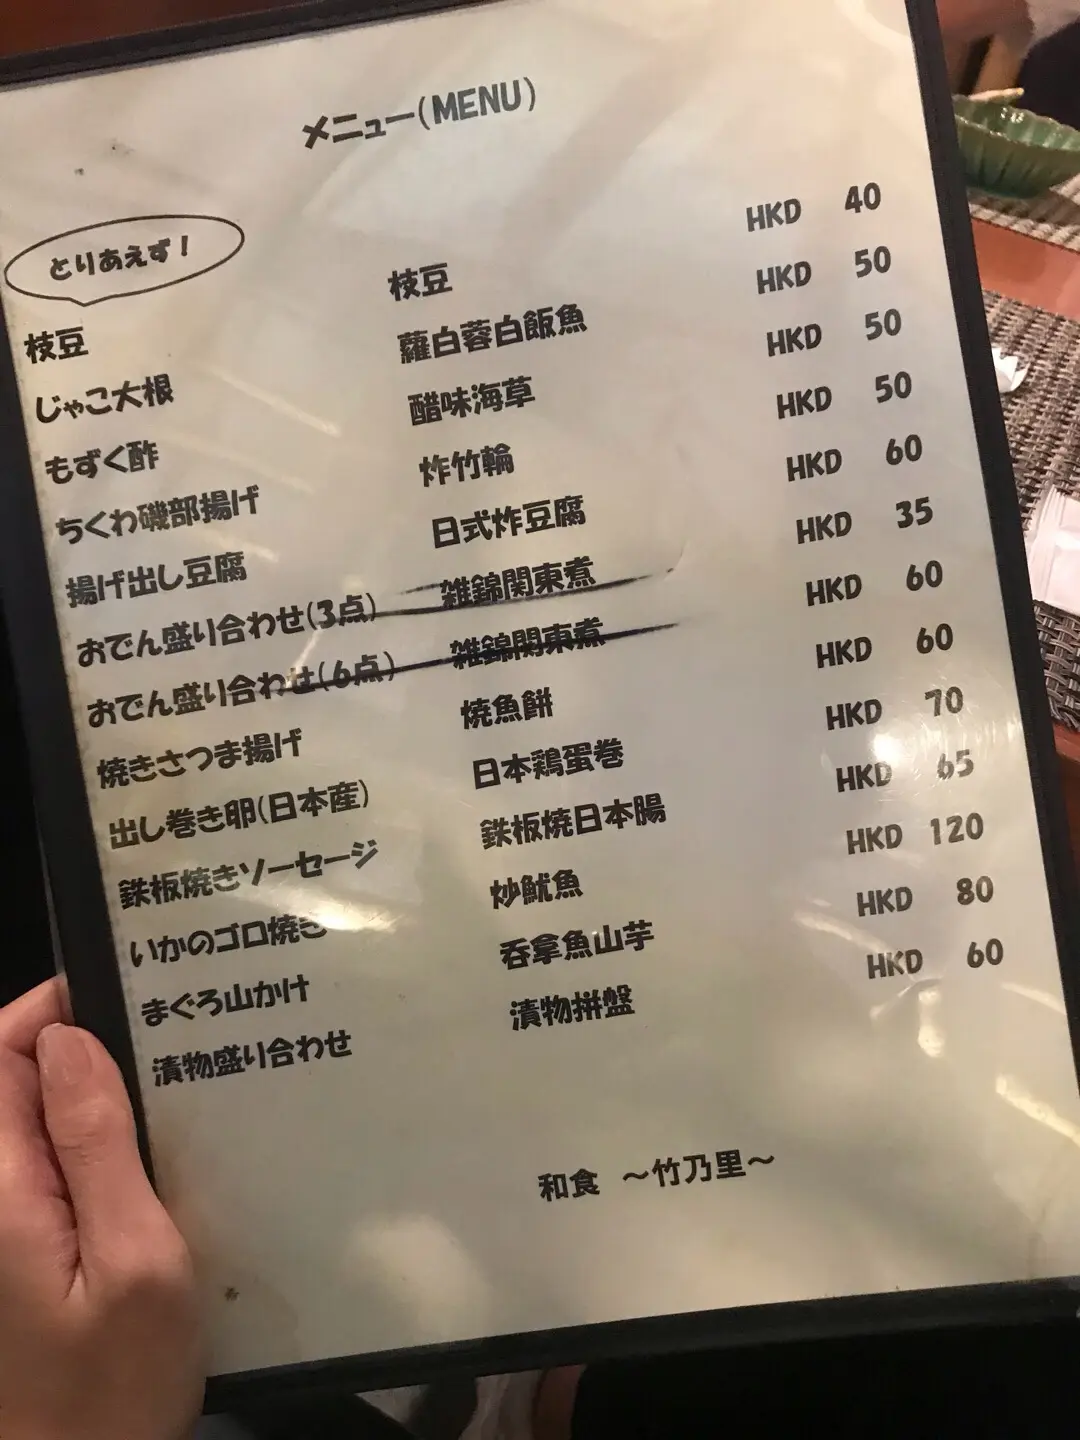 メニュー(MENU)
とりあえず!
枝豆 枝豆 HKD 40
じゃこ大根 蘿白蓉白飯魚 HKD 50
もずく酢 醋味海草 HKD 50
ちくわ磯部揚げ 炸竹輪 HKD 50
揚げ出し豆腐 日式炸豆腐 HKD 60
おでん盛り合わせ(3点) 雑錦関東煮 HKD 35
おでん盛り合わせ(6点) 雑錦関東煮 HKD 60
焼きさつま揚げ 焼魚餅 HKD 60
出し巻き卵(日本産) 日本鶏蛋巻 HKD 70
鉄板焼きソーセージ 鉄板焼日本腸 HKD 65
いかのゴロ焼き 炒魷魚 HKD 120
まぐろ山かけ 呑拿魚山芋 HKD 80
漬物盛り合わせ 漬物拼盤 HKD 60
和食 ～竹乃里～